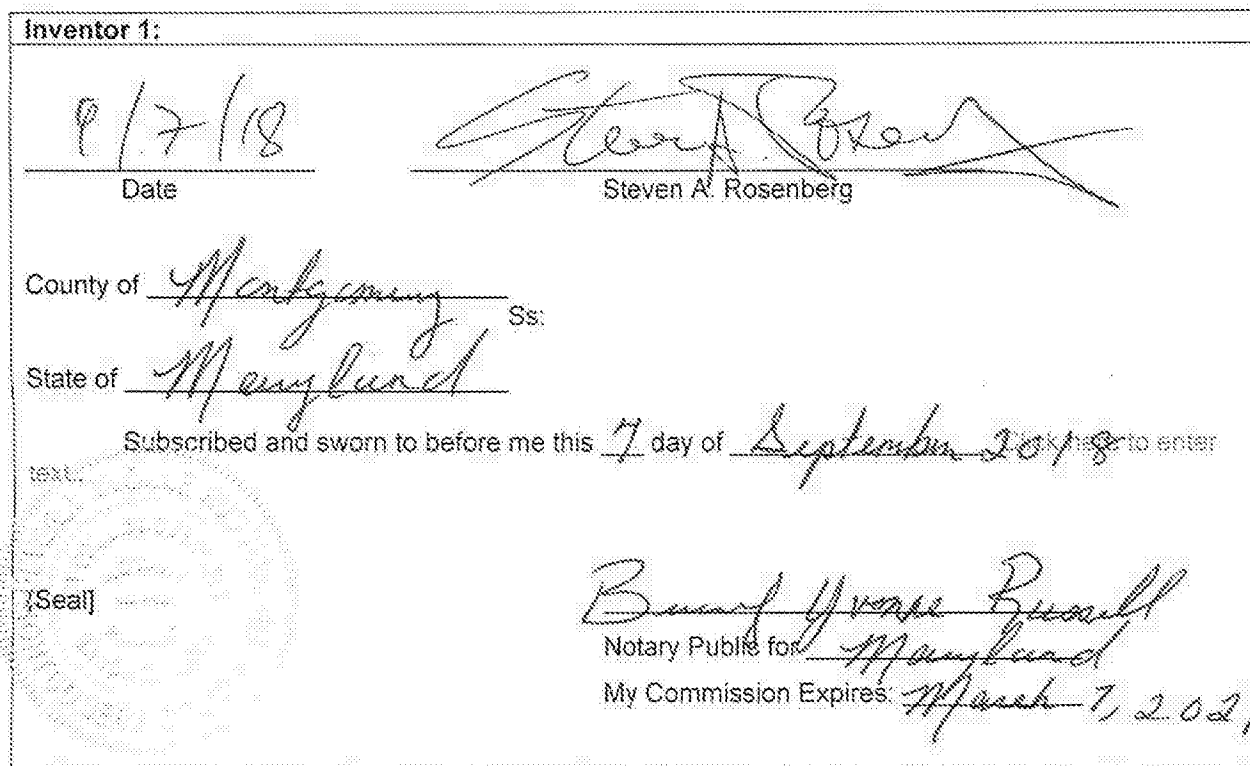 Inventor 1:
9/7/18
Date Steven A. Rosenberg
County of Montgomery Ss:
State of Maryland
Subscribed and sworn to before me this 7 day of September 2018 to enter
text.
[Seal]
Yvonne Russell
Notary Public for Maryland
My Commission Expires: March 7, 202